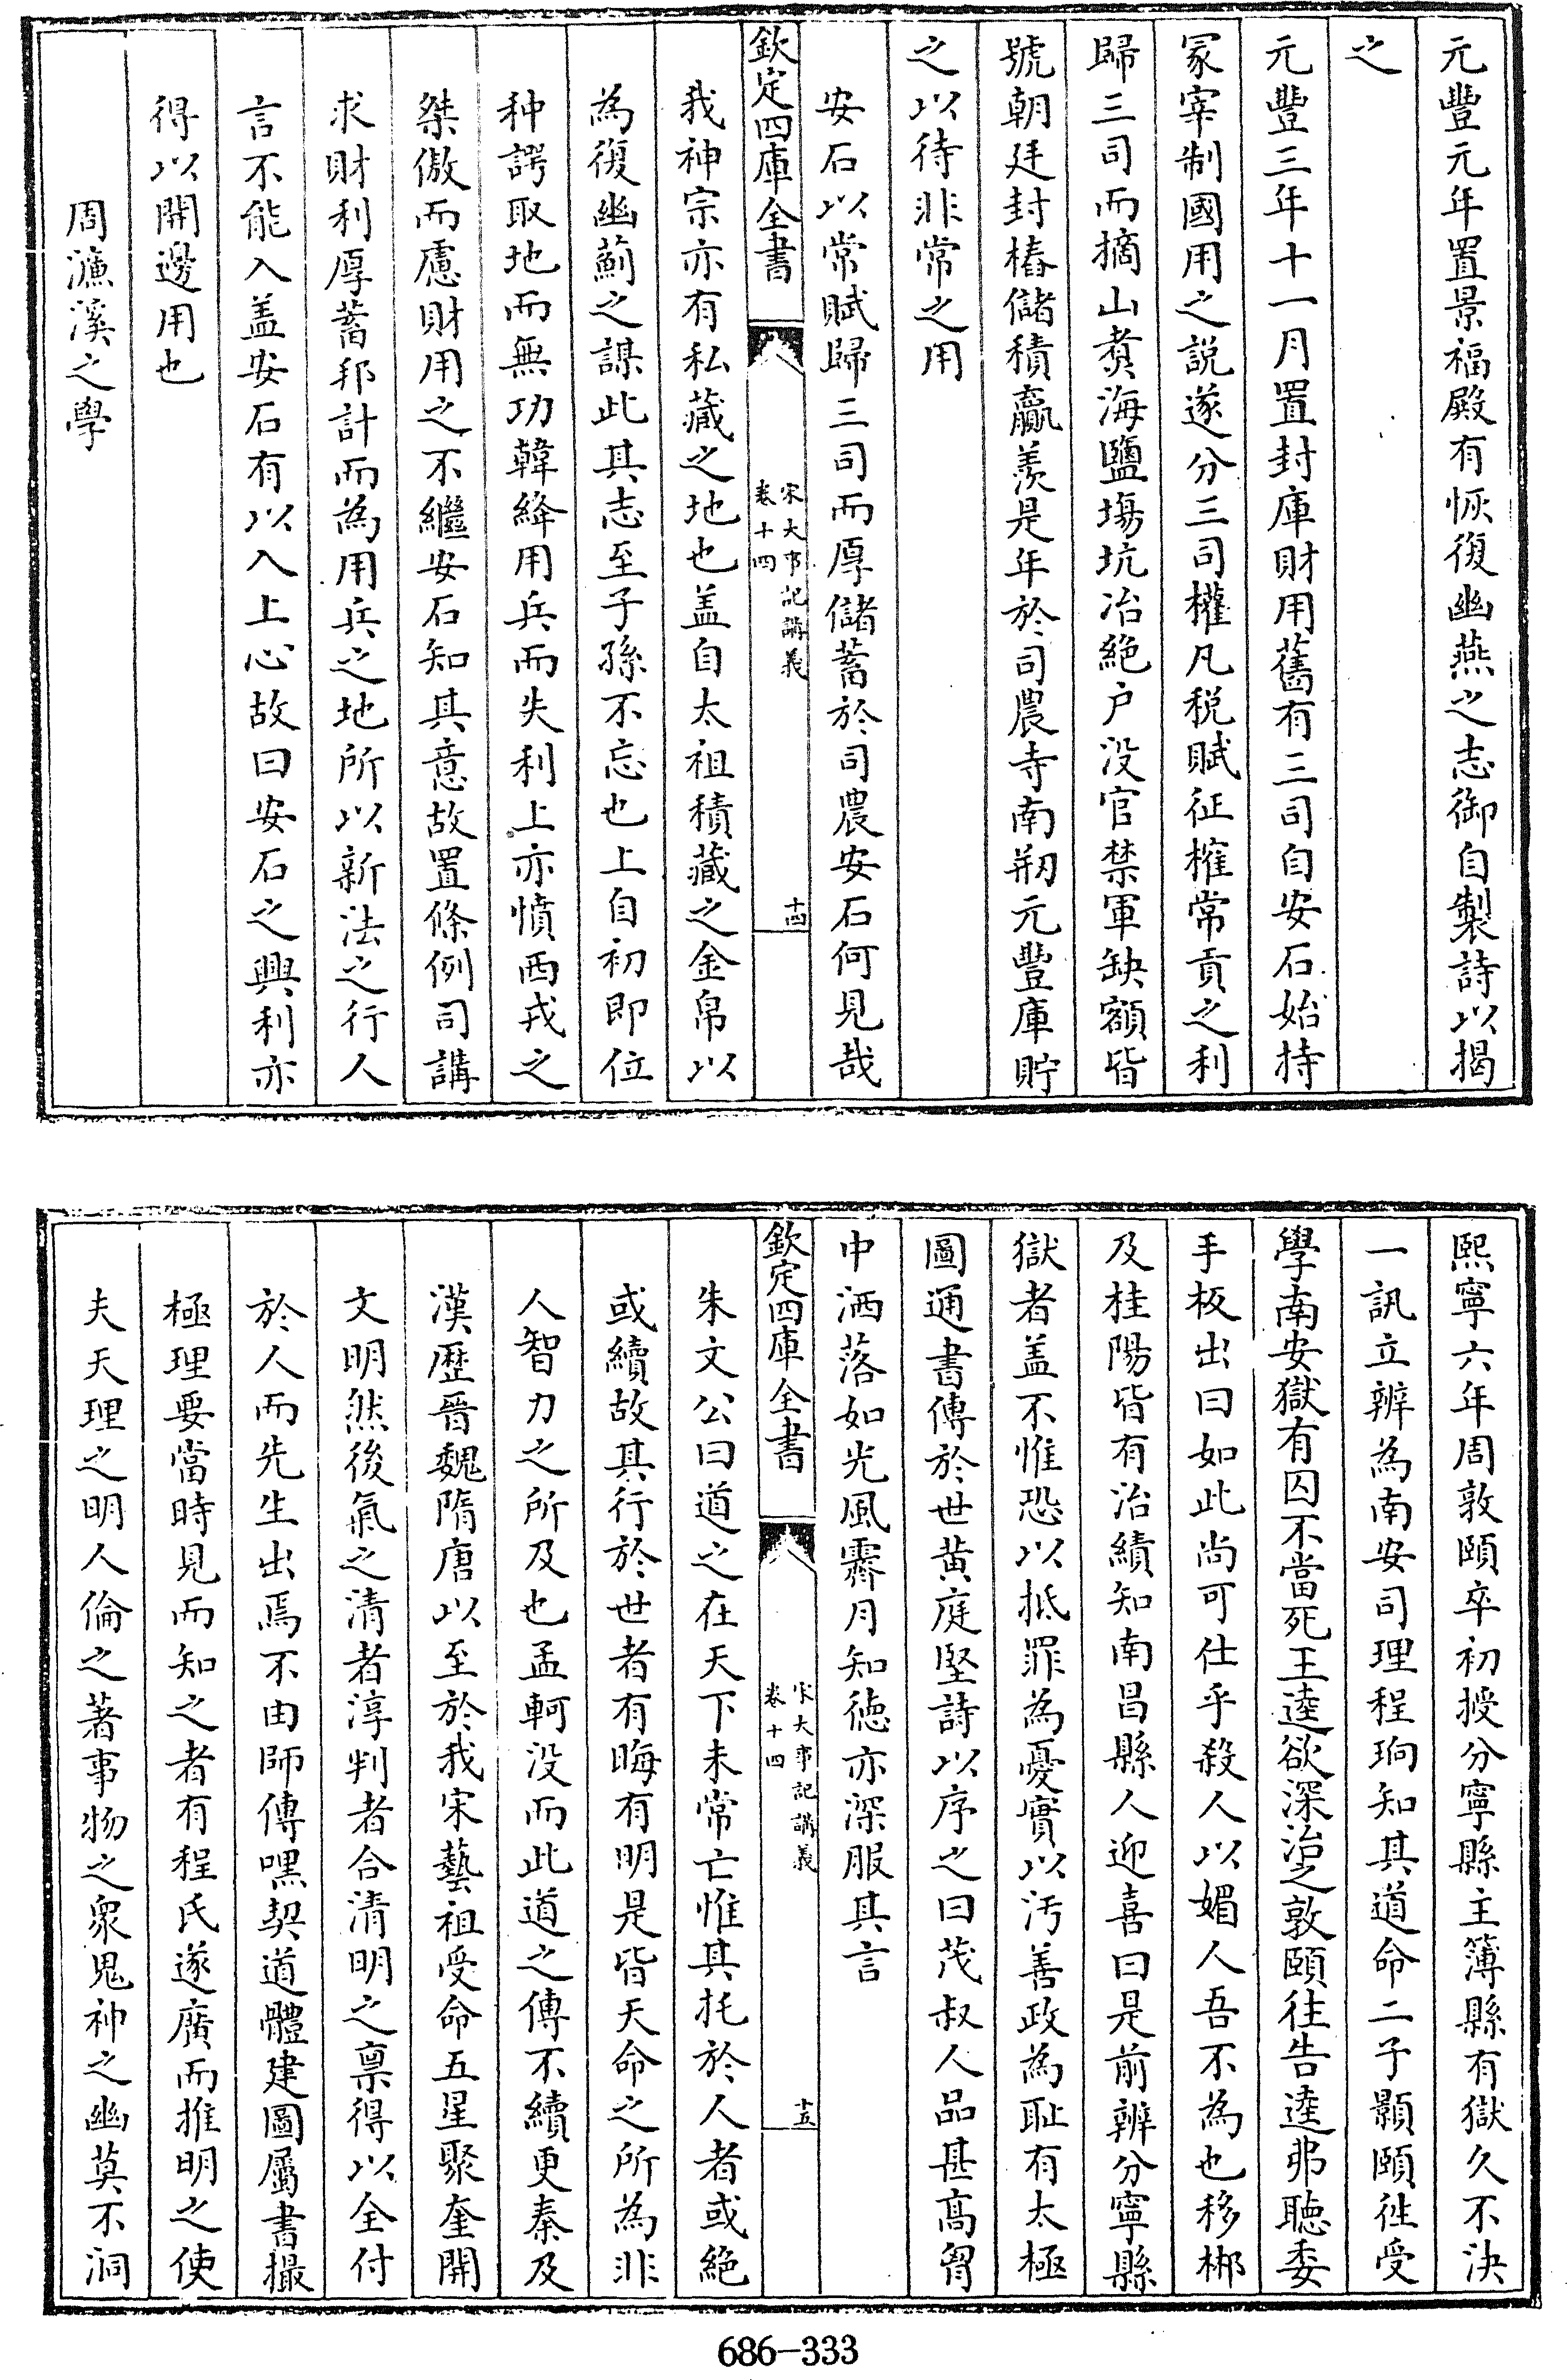 元豐元年置景福殿有恢復幽燕之志御自製詩以揭
之
元豐三年十一月置封庫財用舊有三司自安石始持
冡宰制國用之說遂分三司權凡税賦征榷常貢之利
歸三司而摘山煑海鹽塲坑冶絶户没官禁軍缺額皆
號朝廷封樁儲積羸羡是年於司農寺南剏元豐庫貯
之以待非常之用
安石以常賦歸三司而厚儲蓄於司農安石何見哉
欽定四庫全書
宋大事記講義
卷十四
十四
我神宗亦有私藏之地也盖自太祖積藏之金帛以
為復幽薊之謀此其志至子孫不忘也上自初即位
种諤取地而無功韓絳用兵而失利上亦憤西戎之
桀傲而慮財用之不繼安石知其意故置條例司講
求財利厚蓄邦計而為用兵之地所以新法之行人
言不能入盖安石有以入上心故曰安石之興利亦
得以開邊用也
周濂溪之學
熙寧六年周敦頤卒初授分寧縣主簿縣有獄久不決
一訊立辨為南安司理程珦知其道命二子顥頤徃受
學南安獄有囚不當死王逵欲深治之敦頤往告逵弗聽委
手板出曰如此尚可仕乎殺人以媚人吾不為也移郴
及桂陽皆有治績知南昌縣人迎喜曰是前辨分寧縣
獄者盖不惟恐以抵罪為憂實以汚善政為耻有太極
圖通書傳於世黄庭堅詩以序之曰茂叔人品甚高胷
中洒落如光風霽月知徳亦深服其言
欽定四庫全書
宋大事記講義
卷十四
十五
朱文公曰道之在天下未常亡惟其托於人者或絶
或續故其行於世者有晦有明是皆天命之所為非
人智力之所及也孟軻没而此道之傳不續更秦及
漢歴晉魏隋唐以至於我宋藝祖受命五星聚奎開
文明然後氣之清者淳判者合清明之禀得以全付
於人而先生出焉不由師傳嘿契道體建圖屬書撮
極理要當時見而知之者有程氏遂廣而推明之使
夫天理之明人倫之著事物之衆鬼神之幽莫不洞
686-333